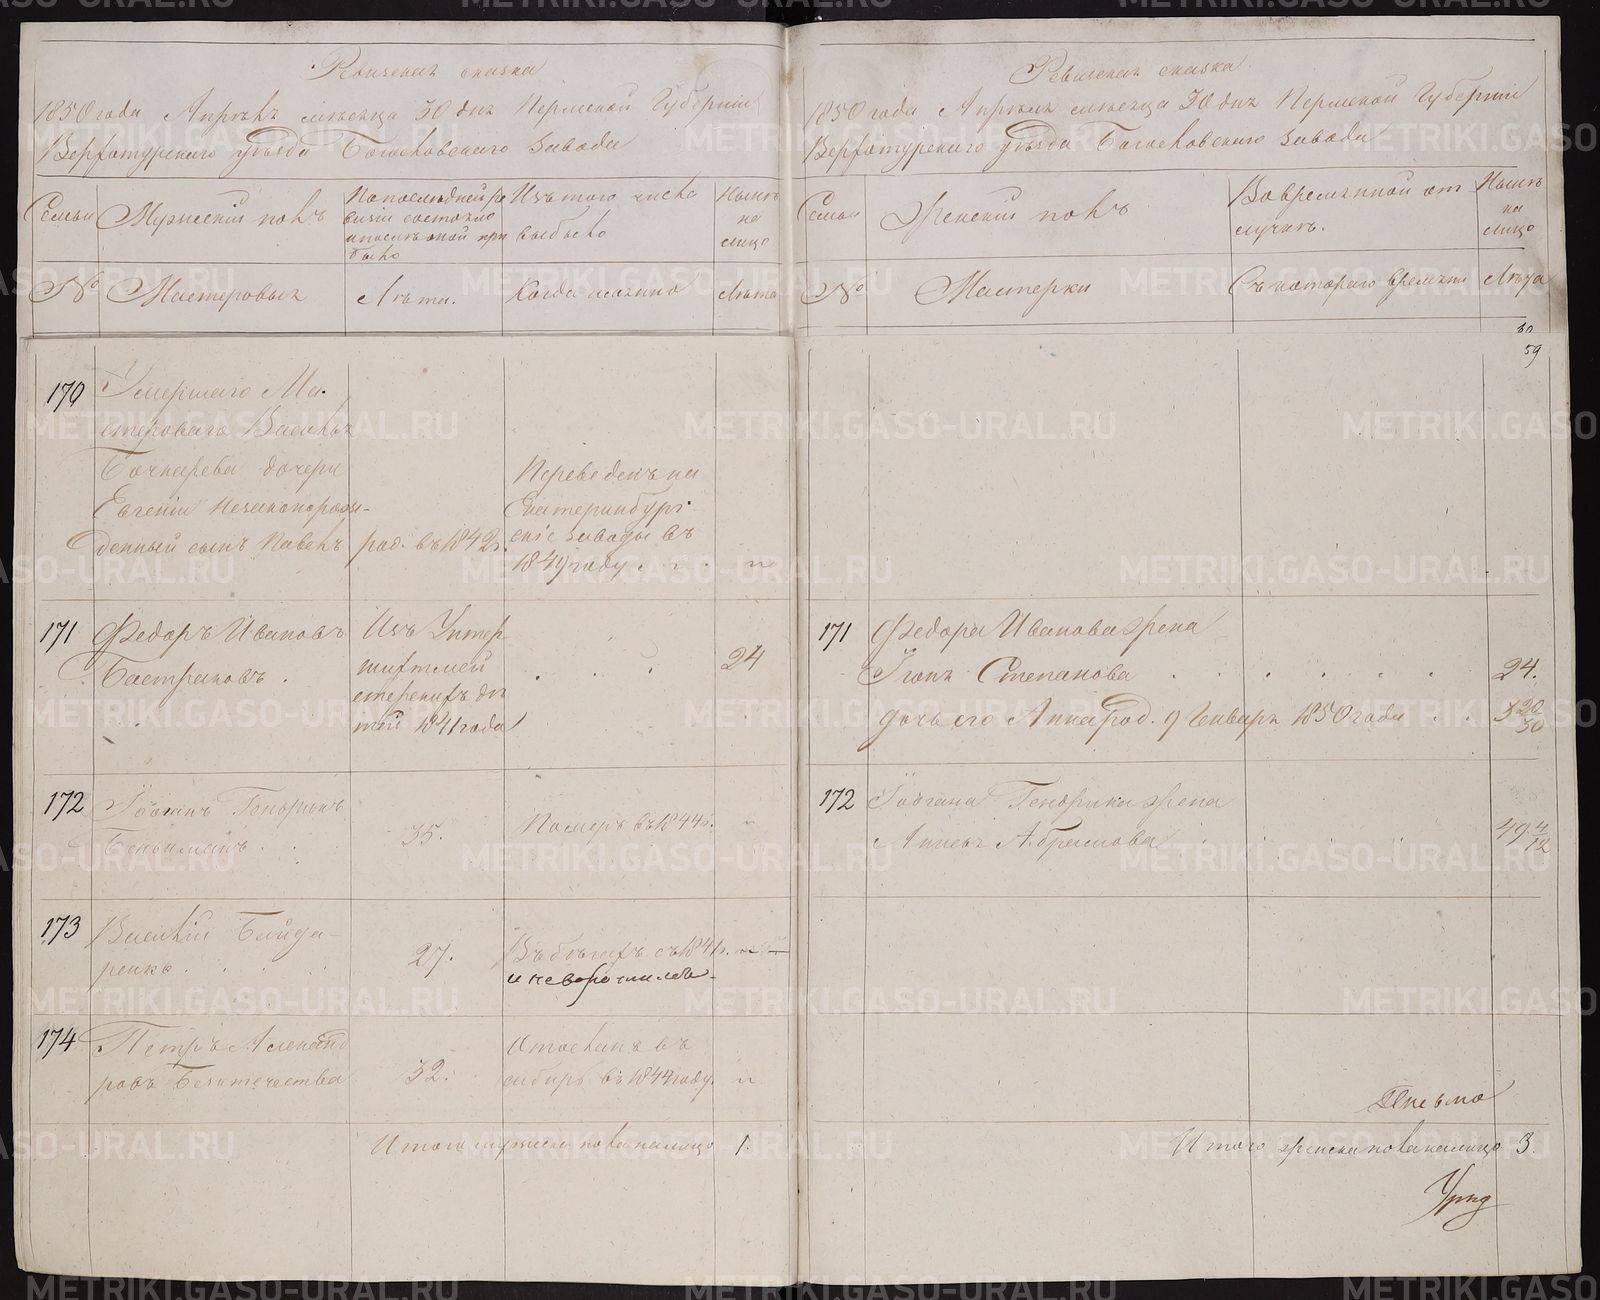 Ревизская сказка
1850 года Апреля месяца 30 дня Пермской Губернии
Верхотурского уезда Богословского завода
Семьи
Мужеский полъ
По последней ре
визіи состояло
и после оной при
было
Изъ того числа
выбыло
Ныне
на
лицо
№
Мастеровыя
Лета.
Когда именно
Лета
170
Умершаго Ма
стероваго Василья
Бочкарева дочери
Евгеніи незаконорож-
денный сынъ Павелъ
род. въ 1842 г.
Переведенъ на
Екатеринбург-
скіе заводы въ
1849 году . . .
"
171
Федоръ Ивановъ
Бастраковъ .
Изъ Унтер
шихтмей
стерскихъ де
тей 1841 года
24
172
Іоганъ Гендрикъ
Беньяминъ . .
35.
Померъ въ 1844 г.
"
173
Василій Байда-
ренко . . .
27.
Въ бегахъ съ 1841 г.
и неворотился
174
Петръ Александ
ровъ Безотечества
32.
Отосланъ въ
сибирь въ 1844 году.
"
Итого мужеска пола налицо 1.
Ревизская сказка
1850 года Апреля месяца 30 дня Пермской Губерніи
Верхотурского уезда Богословского завода
Семьи
Женскій полъ
Во временной от
лучке.
Ныне
на
лицо
№
Мастерки
Съ котораго времени
Лета
59
171
Федора Иванова жена
Степанова
24.
дочь его Анна род. 9 Генваря 1850 года . .
172
Іогана Гендрика жена
Абрамова
49 4/12
Итого женска пола налицо 3.
METRIKI.GASO-URAL.RU